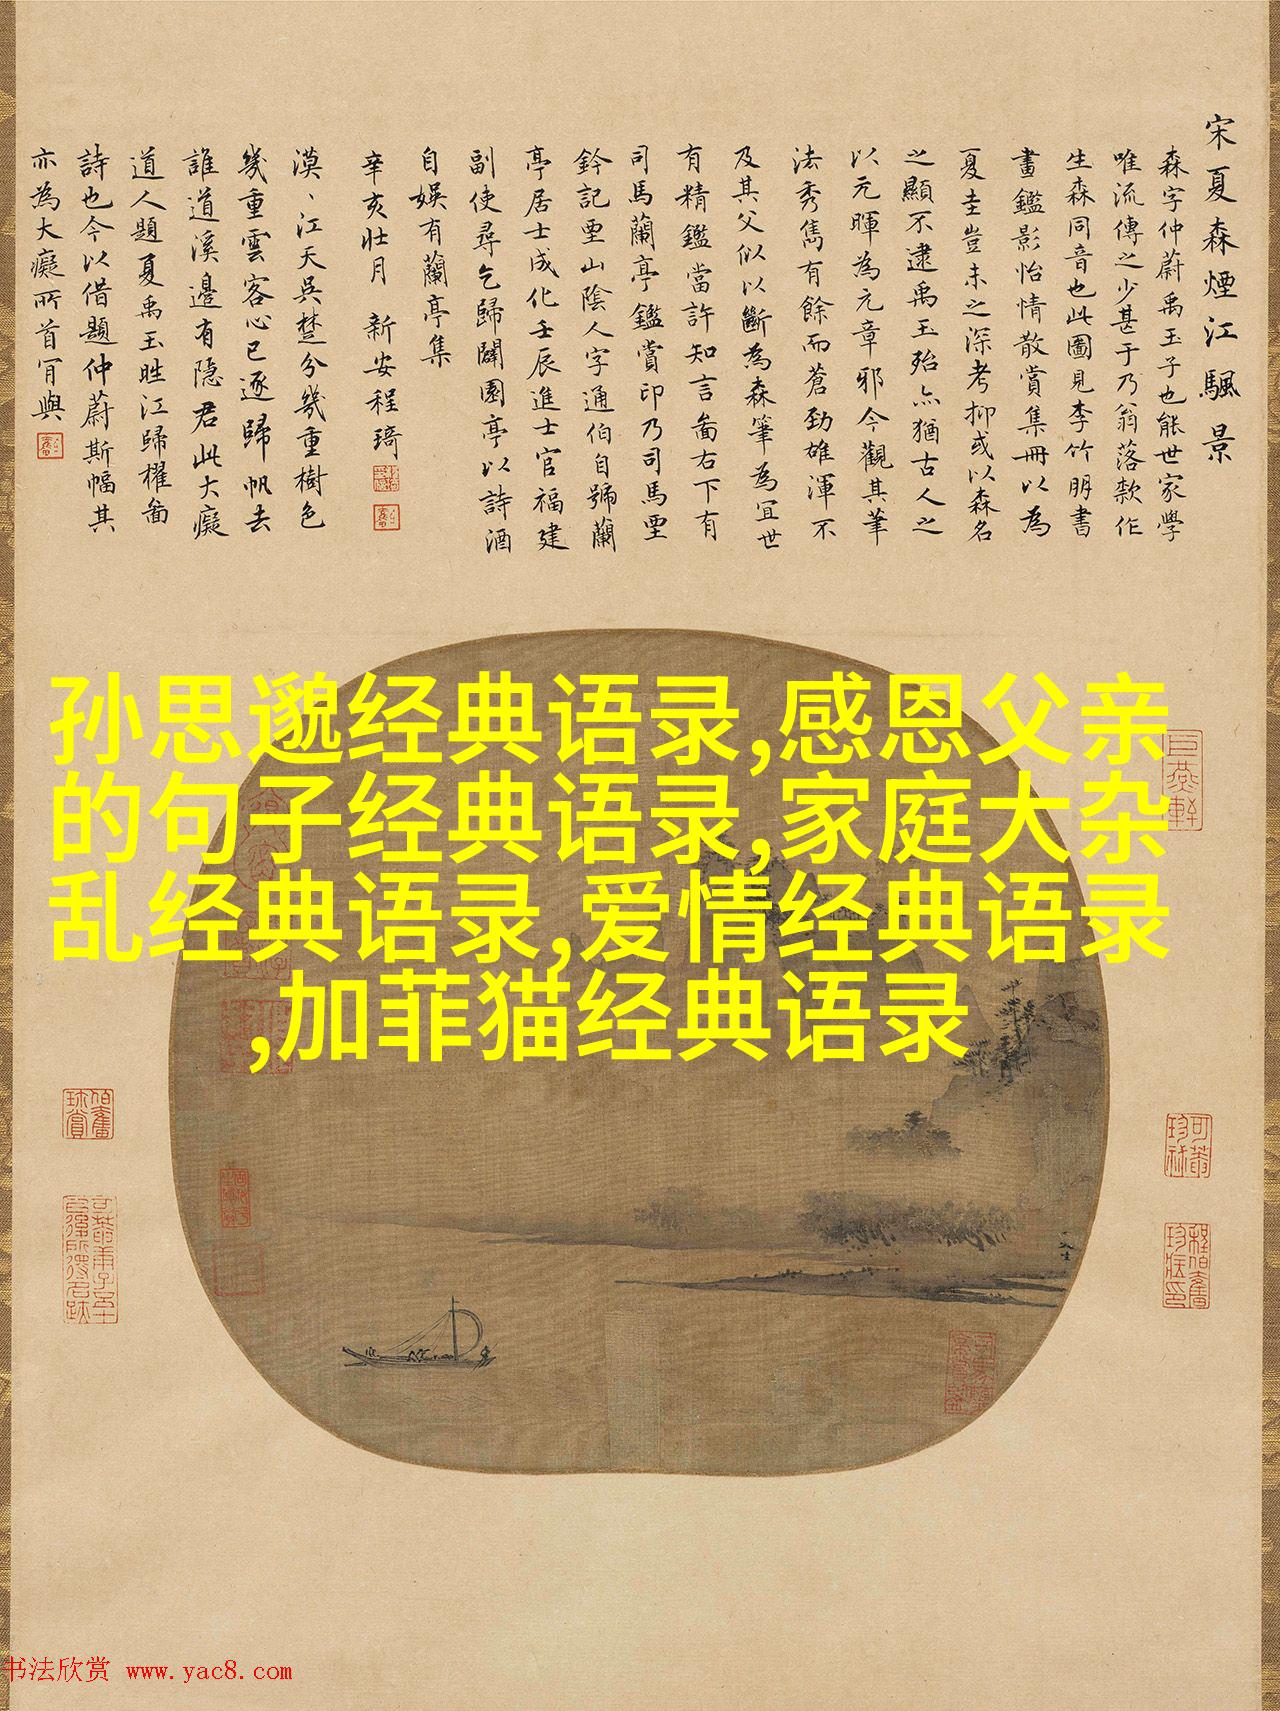 宋夏森煙江颿景
森字仲蔚禹玉子也能世家學
唯流傳之少甚于乃翁落款作
生森同音也此圖見李竹朋書
畫鑑影怡情散賞集冊以為
夏圭豈未之深考抑或以森名
之顯不逮禹玉殆亦猶古人之
以元暉為元章邪今觀其筆
法秀雋有餘而蒼勁雄渾不
及其父似以斷為森筆為宜世
有精鑑當許知言圅右下有
司馬蘭亭鑑賞印乃司馬垔
鈐記垔山陰人字通伯自號蘭
亭居士成化壬辰進士官福建
副使尋乞歸闢園亭以詩酒
自娛有蘭亭集
辛亥壯月 新安程琦
漠、江天吳楚分幾重樹色
幾重雲客心已逐歸帆去
誰道溪邊有隱君此大癡
道人題夏禹玉晴江歸櫂圖
詩也今以借題仲蔚斯幅其
亦為大癡所首肯與
孙思邈经典语录,感恩父亲
的句子经典语录,家庭大杂
乱经典语录,爱情经典语录
,加菲猫经典语录
书法欣赏 www.yac8.com